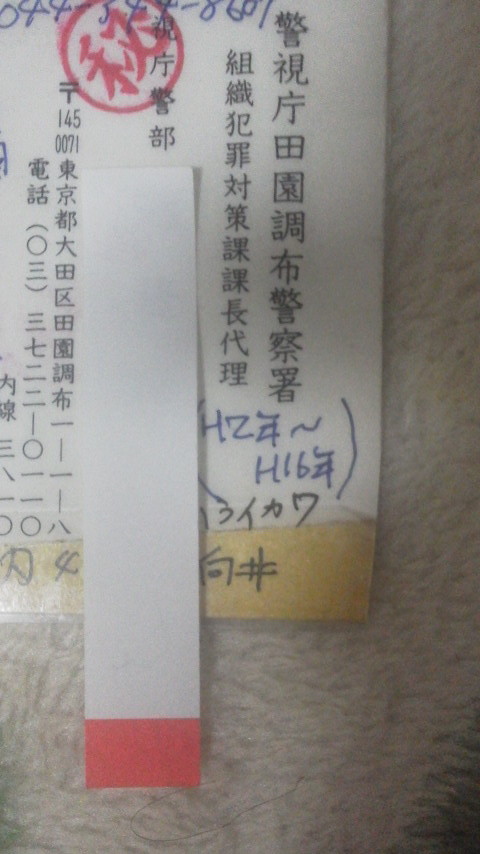 044-344-8607
警視庁田園調布警察署
組織犯罪対策課課長代理
(H2年～
H16年)
イカワ
向井
視庁警部
㊙
〒145
0071
東京都大田区田園調布一ー一ー八
電話(〇三)三七二二ー〇一一〇
内線 三八一〇